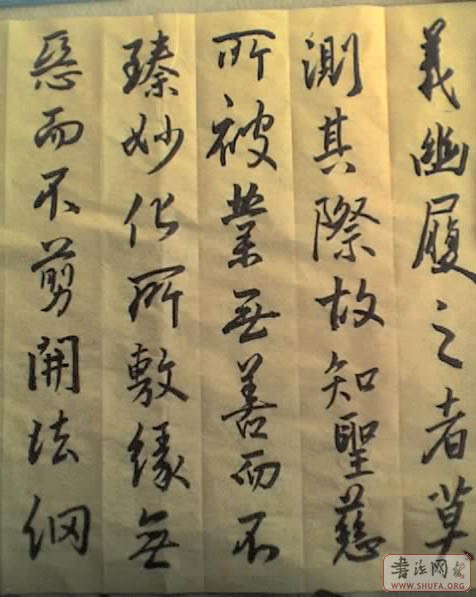 義幽履之者莫
測其際故知聖慈
所被業無善而不
臻妙化所敷緣無
惡而不剪開法網
書法网
WWW.SHUFA.ORG